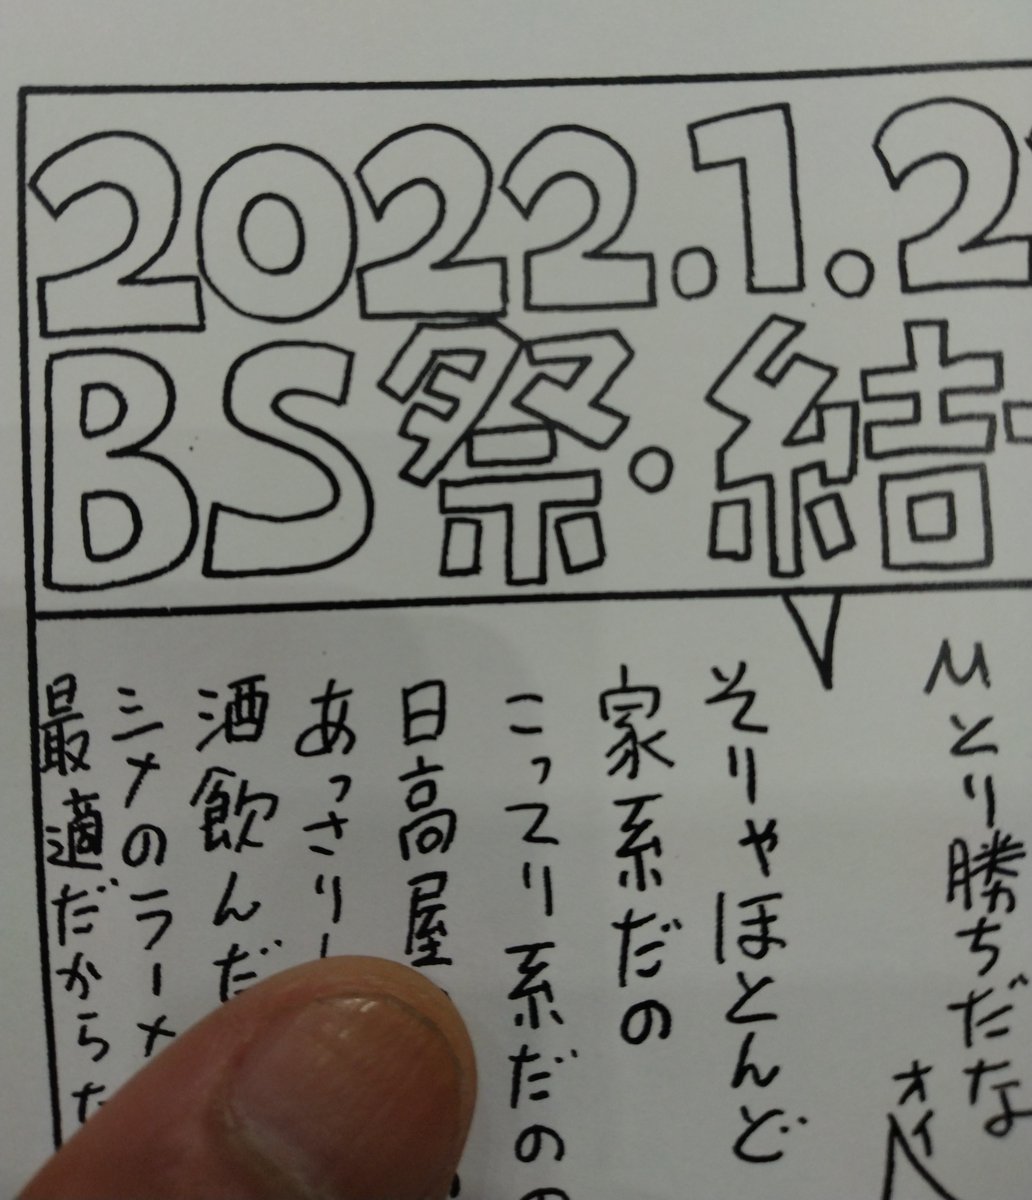 2022.1.2
BS祭.結
μとり勝ちだな
オイ
そりゃほとんど
家系だの
こってり系だの
日高屋
あっさり
酒飲んだ
シメのラーメ
最適だからた